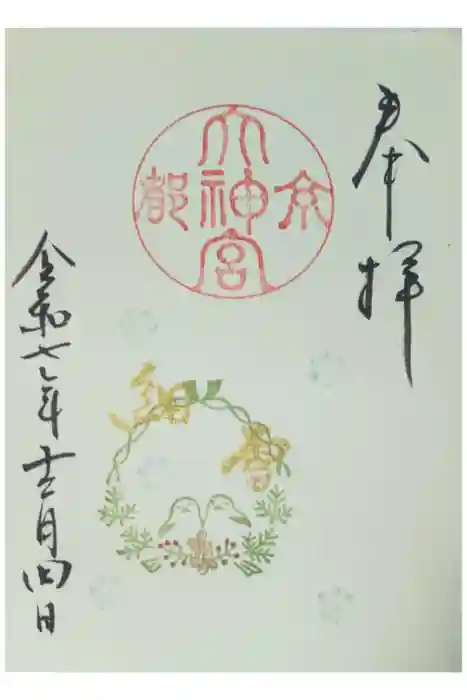 奉拝
京都
大神宮
令和七年十二月四日